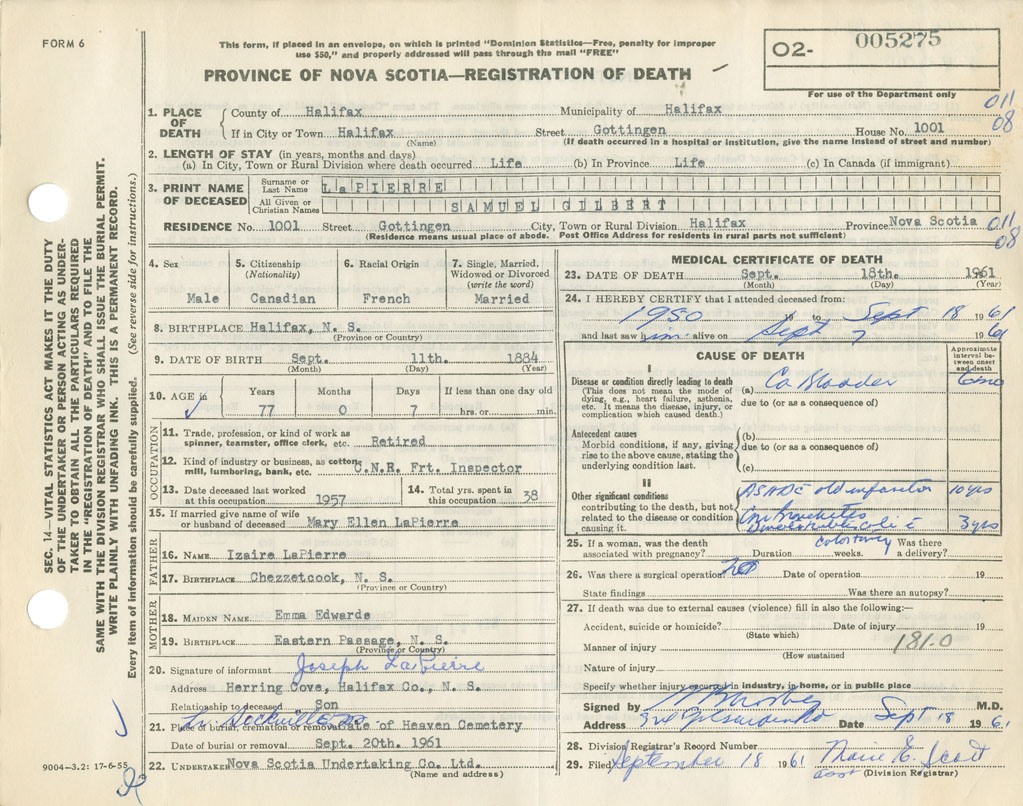 FORM 6
This form, if placed in an envelope, on which is printed "Dominion Statistics—Free, penalty for improper
use $50," and properly addressed will pass through the mail "FREE"
PROVINCE OF NOVA SCOTIA—REGISTRATION OF DEATH
O2- 005275
For use of the Department only
011
08
SEC. 14—VITAL STATISTICS ACT MAKES IT THE DUTY
OF THE UNDERTAKER OR PERSON ACTING AS UNDER-
TAKER TO OBTAIN ALL THE PARTICULARS REQUIRED
IN THE "REGISTRATION OF DEATH" AND TO FILE THE
SAME WITH THE DIVISION REGISTRAR WHO SHALL ISSUE THE BURIAL PERMIT.
WRITE PLAINLY WITH UNFADING INK. THIS IS A PERMANENT RECORD.
Every item of information should be carefully supplied. (See reverse side for instructions.)
1. PLACE OF DEATH County of Halifax Municipality of Halifax
If in City or Town Halifax Street Gottingen House No. 1001
(Name) (If death occurred in a hospital or institution, give the name instead of street and number)
2. LENGTH OF STAY (in years, months and days)
(a) In City, Town or Rural Division where death occurred Life (b) In Province Life (c) In Canada (if immigrant)
3. PRINT NAME OF DECEASED Surname or Last Name LaPIERRE
All Given or Christian Names SAMUEL GILBERT
RESIDENCE No. 1001 Street Gottingen City, Town or Rural Division Halifax Province Nova Scotia
011
08
(Residence means usual place of abode. Post Office Address for residents in rural parts not sufficient)
4. Sex Male
5. Citizenship (Nationality) Canadian
6. Racial Origin French
7. Single, Married, Widowed or Divorced (write the word) Married
8. BIRTHPLACE Halifax, N. S.
(Province or Country)
9. DATE OF BIRTH Sept. 11th. 1884
(Month) (Day) (Year)
10. AGE in Years Months Days If less than one day old
77 0 7 hrs. or min.
OCCUPATION
11. Trade, profession, or kind of work as spinner, teamster, office clerk, etc. Retired
12. Kind of industry or business, as cotten mill, lumbering, bank, etc. C.N.R. Frt. Inspector
13. Date deceased last worked at this occupation 1957
14. Total yrs. spent in this occupation 38
15. If married give name of wife or husband of deceased Mary Ellen LaPierre
FATHER
16. NAME Izaire LaPierre
17. BIRTHPLACE Chezzetcook, N. S.
(Province or Country)
MOTHER
18. MAIDEN NAME Emma Edwards
19. BIRTHPLACE Eastern Passage, N. S.
(Province or Country)
20. Signature of informant Joseph LaPierre
Address Herring Cove, Halifax Co., N. S.
Relationship to deceased Son
21. Place of burial, cremation or removal Gate of Heaven Cemetery
Date of burial or removal Sept. 20th. 1961
22. UNDERTAKER Nova Scotia Undertaking Co. Ltd.
(Name and address)
9004—3.2: 17-6-55
MEDICAL CERTIFICATE OF DEATH
23. DATE OF DEATH Sept. 18th. 1961
(Month) (Day) (Year)
24. I HEREBY CERTIFY that I attended deceased from:
1950 19 to Sept 18 1961
and last saw him alive on Sept 7 1961
CAUSE OF DEATH
Approximate interval between onset and death
I
Disease or condition directly leading to death (a) Ca Bladder 6 mo
(This does not mean the mode of dying, e.g., heart failure, asthenia, etc. It means the disease, injury, or complication which caused death.)
due to (or as a consequence of)
Antecedent causes
Morbid conditions, if any, giving rise to the above cause, stating the underlying condition last.
(b)
due to (or as a consequence of)
(c)
II
Other significant conditions contributing to the death, but not related to the disease or condition causing it.
old infarction 10 yrs
Bronchitis
coli 3 yrs
colostomy
25. If a woman, was the death associated with pregnancy? Duration weeks. Was there a delivery?
26. Was there a surgical operation? Date of operation 19
State findings Was there an autopsy?
27. If death was due to external causes (violence) fill in also the following:—
Accident, suicide or homicide? Date of injury 19
(State which)
Manner of injury 181.0
(How sustained
Nature of injury
Specify whether injury occurred in industry, in home, or in public place
Signed by M.D.
Address Date Sept 18 1961
28. Division Registrar's Record Number
29. Filed September 18 1961 Marie E. Scott
(Division Registrar)